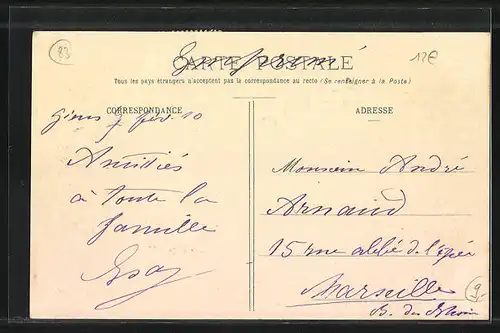 83
12€
Imprimé
CARTE POSTALE
Tous les pays étrangers n'acceptent pas la correspondance au recto (Se renseigner à la Poste)
CORRESPONDANCE
ADRESSE
Giens 7 fév. 10
Amitiés
à toute la
famille
Monsieur André
Arnaud
15 rue abbé de l'Epée
Marseille
B. du Rhône
9.